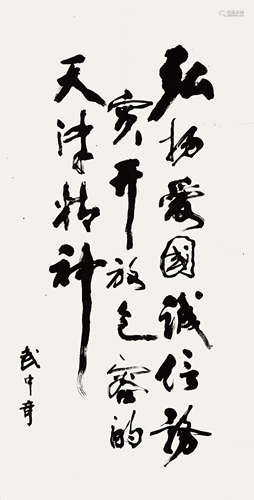 弘扬愛國誠信務
实开放包容的
天津精神
武中奇